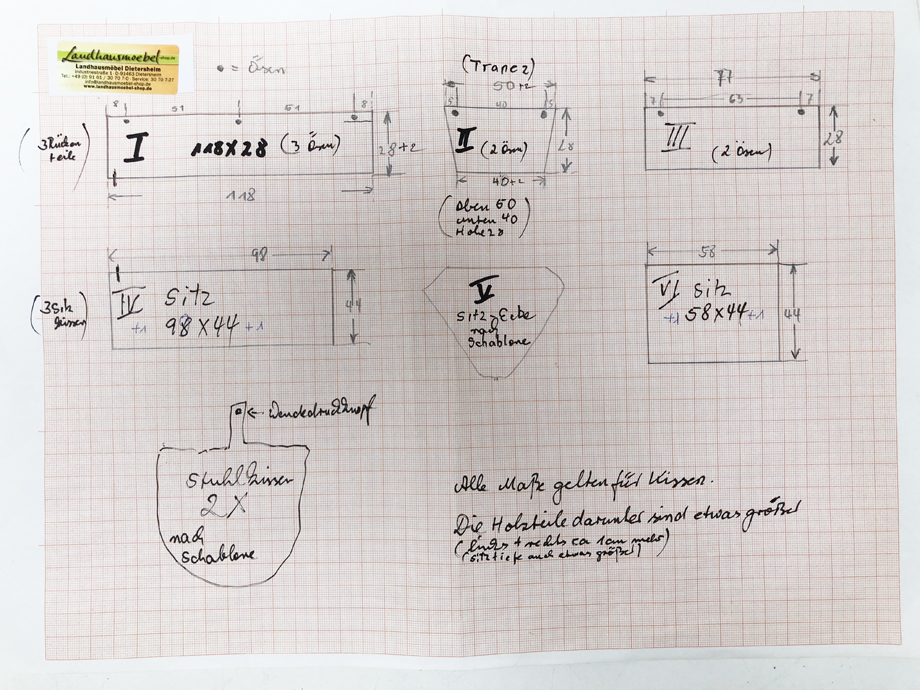 Landhausmoebel-shop.de
Landhausmöbel Dietersheim
Industriestraße 1 D-91463 Dietersheim
info@landhausmoebel-shop.de
www.landhausmoebel-shop.de
• = Ösen
8 51 51 8
(3 Rücken
teile)
I 118x28 (3 Ösen)
28+2
118
(Trapez)
50+2
5 40 5
II (2 Ösen)
28
40+2
(Oben 50
unten 40
Höhe 28)
77
7 63 7
III (2 Ösen)
28
(3 Sitz
kissen)
98
IV Sitz
+1 98x44 +1
44
V
Sitz-Ecke
nach
Schablone
58
VI Sitz
+1 58x44 +1
44
← Wendedruckknopf
Stuhlkissen
2x
nach
Schablone
Alle Maße gelten für Kissen.
Die Holzteile darunter sind etwas größer
(links + rechts ca 1cm mehr)
(Sitztiefe auch etwas größer)